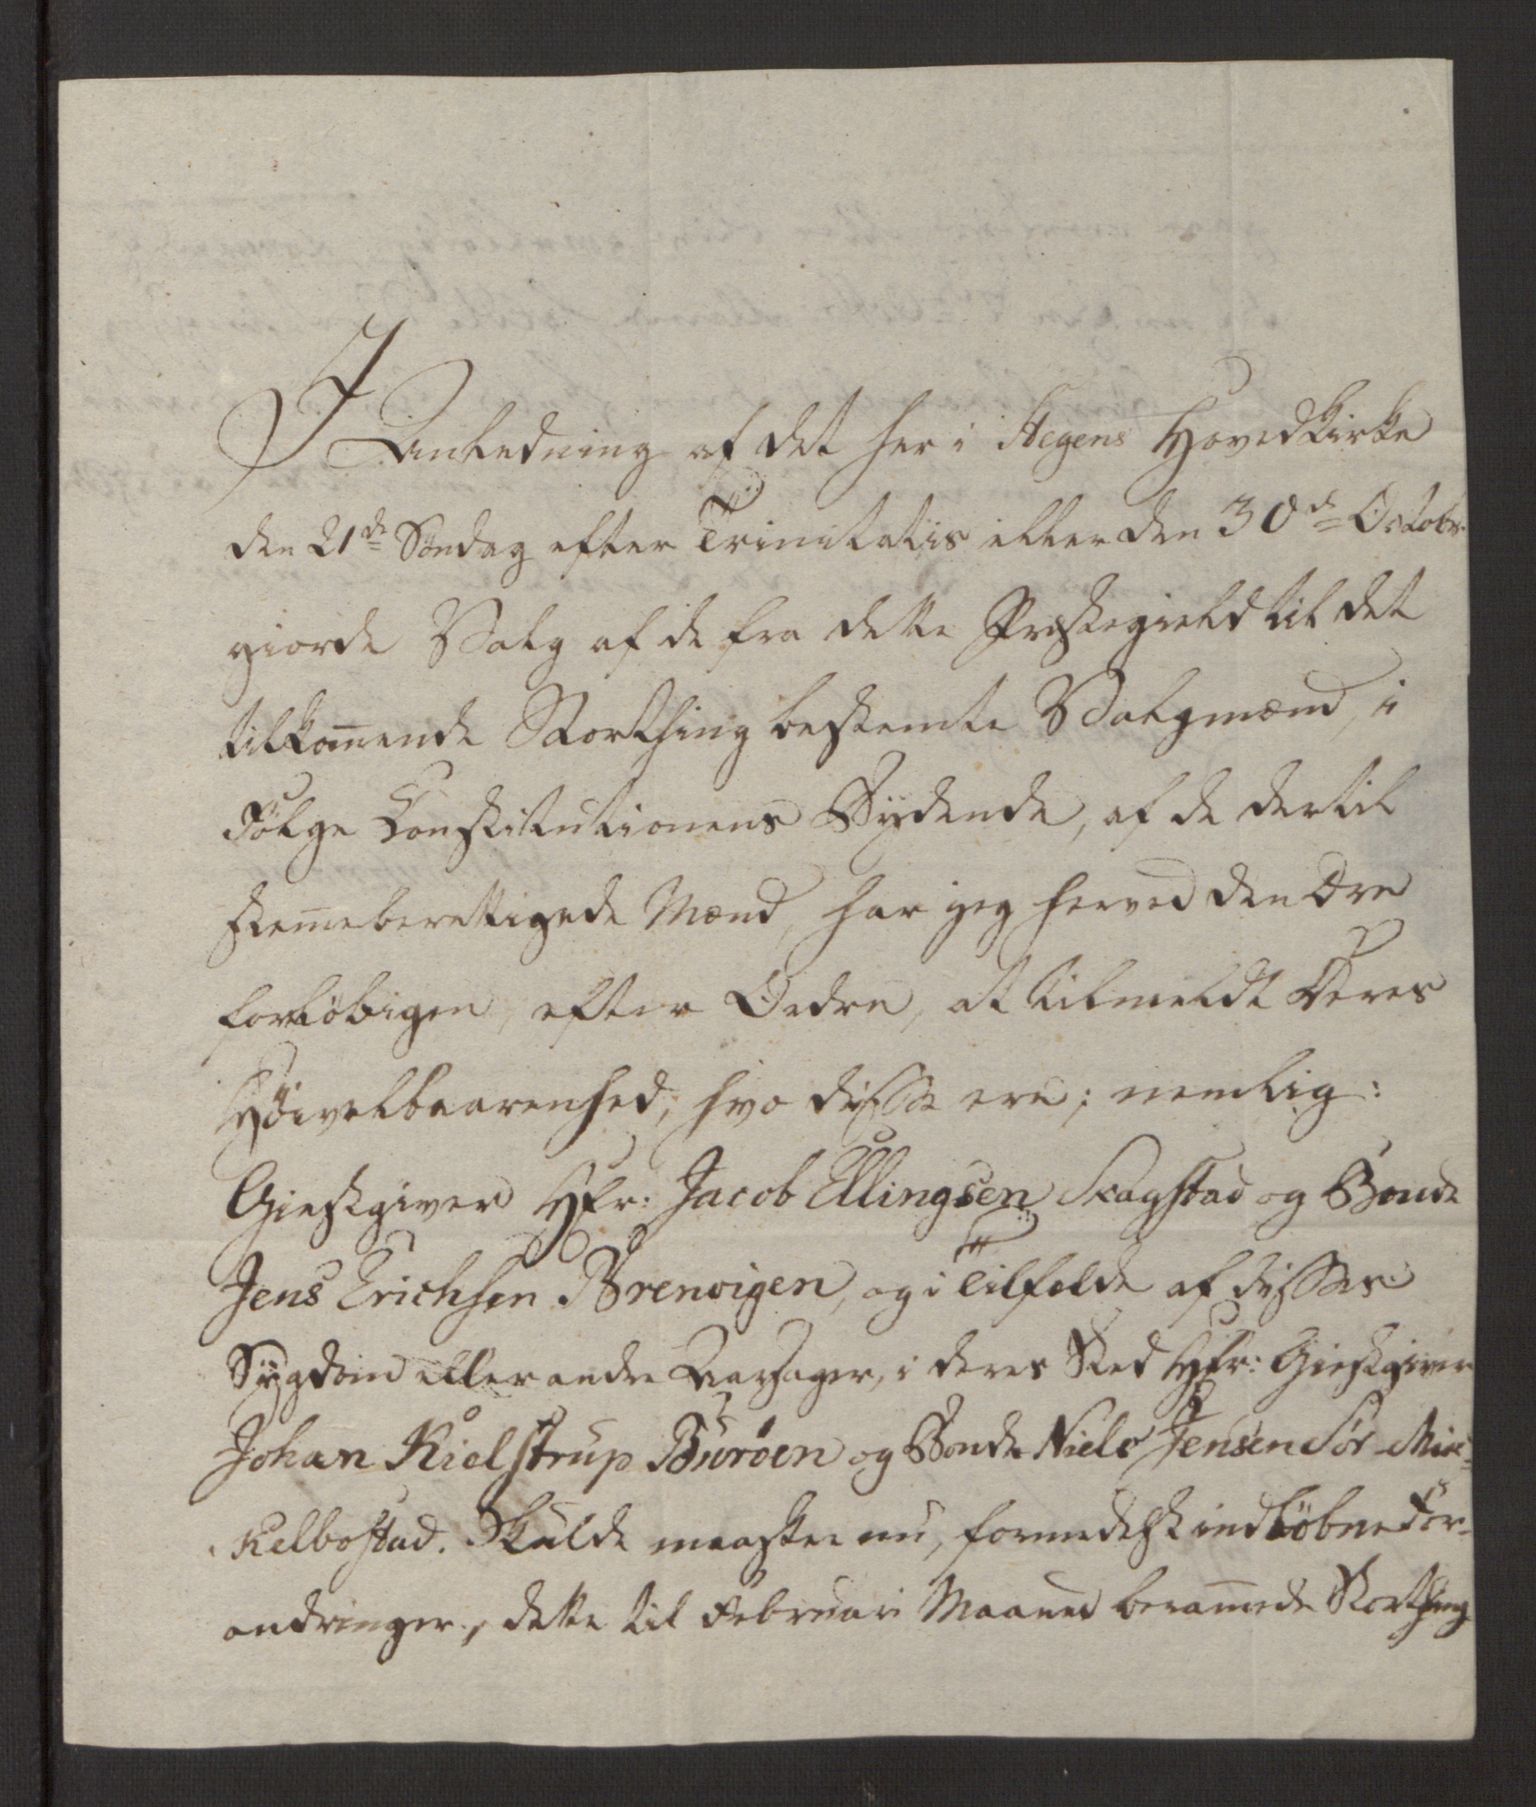 I Anledning af det her i Stegens Hovedkirke
den 21de Söndag efter Trinitatis eller den 30de Octobr.
giorde Valg af de fra dette Præstegield til det
tilkom̅ende Storthing bestemte Valgmænd, i
Fölge Constitutionens Bydende, af de dertil
stem̅eberettigede Mænd, har jeg herved den Ære
forlöbigen, efter Ordre, at tilmeldt Deres
Höivelbaarenhed, hvo disse ere; nemlig:
Giestgiver Hr: Jacob Ellingsen Skagstad og Bonde
Jens Erichsen Brenvigen, og i Tilfelde af disses
Sygdom eller andre Aarsager, i deres Sted Hr: Giestgiver
Johan Kielstrup Buröen og Bonde Niels Jensen Sör Mik-
kelbostad. Skulde maaskee nu, formedelst indlöbne For-
andringer, dette til Februari Maaned beram̅ede Storthing